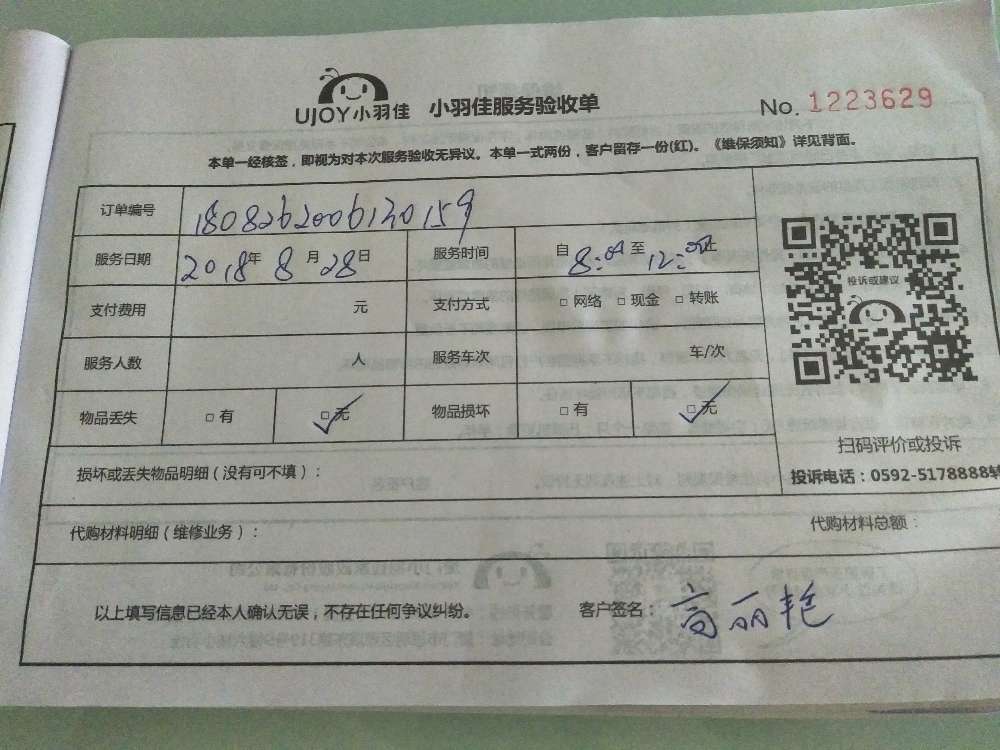 UJOY小羽佳 小羽佳服务验收单 No. 1223629
本单一经核签，即视为对本次服务验收无异议。本单一式两份，客户留存一份(红)。《维保须知》详见背面。
订单编号 1808262006130159
服务日期 2018年8月28日 服务时间 自8:00至12:00止
投诉或建议
支付费用 元 支付方式 □ 网络 □ 现金 □ 转账
服务人数 人 服务车次 车/次
物品丢失 □ 有 □ 无 物品损坏 □ 有 □ 无
扫码评价或投诉
损坏或丢失物品明细（没有可不填）： 投诉电话：0592-5178888转
代购材料明细（维修业务）： 代购材料总额：
以上填写信息已经本人确认无误，不存在任何争议纠纷。 客户签名：高丽艳